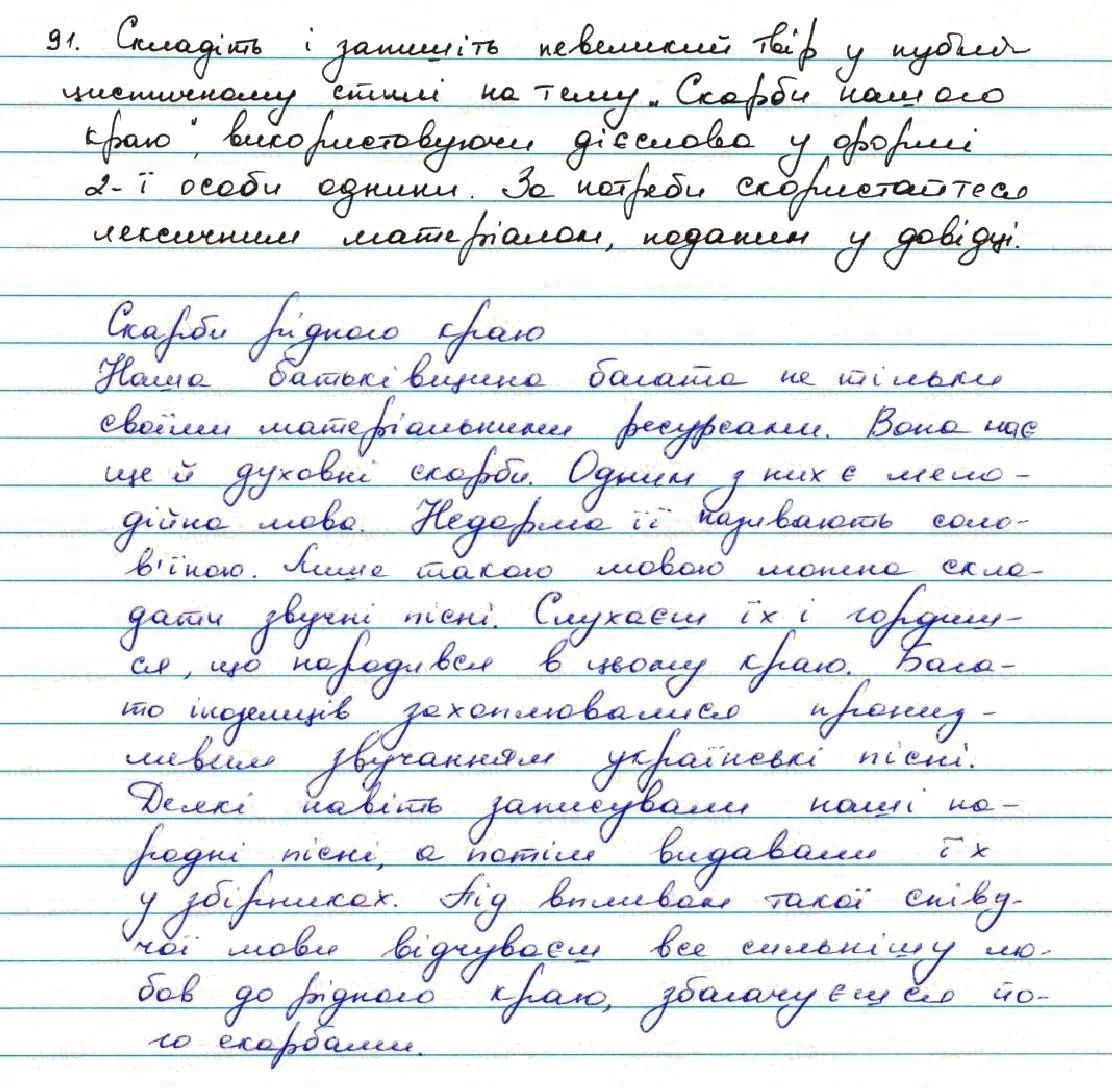 91. Складіть і запишіть невеликий твір у публі-
цистичному стилі на тему „Скарби нашого
краю", використовуючи дієслова у формі
2-ї особи однини. За потреби скористайтеся
лексичним матеріалом, поданим у довідці.
Скарби рідного краю
Наша батьківщина багата не тільки
своїми матеріальними ресурсами. Вона має
ще й духовні скарби. Одним з них є мело-
дійна мова. Недарма її називають соло-
в'їною. Лише такою мовою можна скла-
дати звучні пісні. Слухаєш їх і гордиш-
ся, що народився в цьому краю. Бага-
то іноземців захоплювалися проник-
ливим звучанням української пісні.
Деякі навіть записували наші на-
родні пісні, а потім видавали їх
у збірниках. Під впливом такої співу-
чої мови відчуваєш все сильнішу лю-
бов до рідного краю, збагачуєшся йо-
го скарбами.